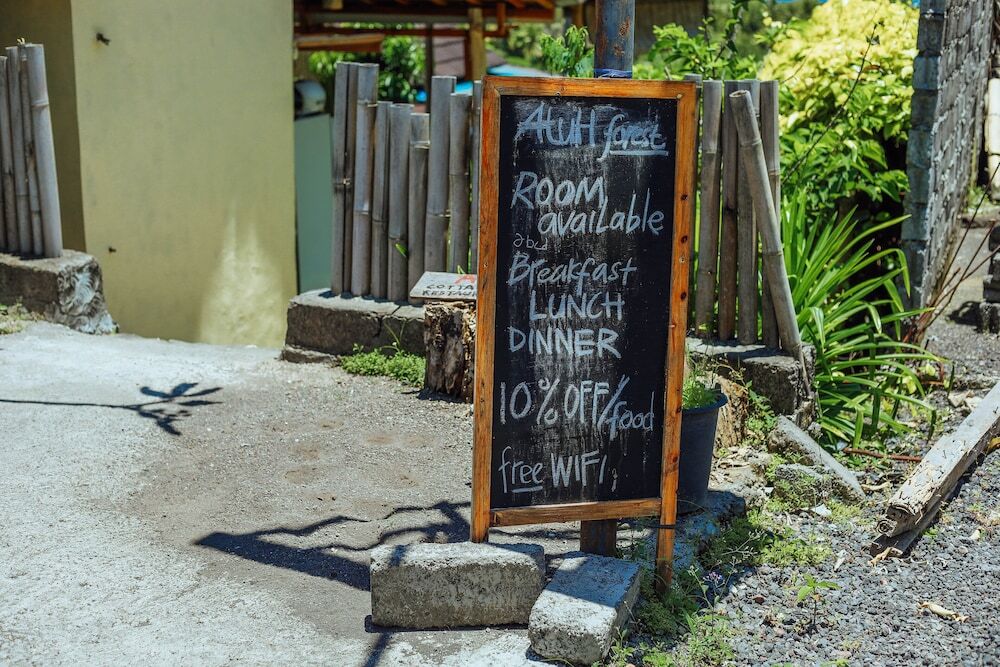 Atuh forest
ROOM
available
Breakfast
LUNCH
DINNER
10% OFF/food
free WIFI
COTTA
RESTAU